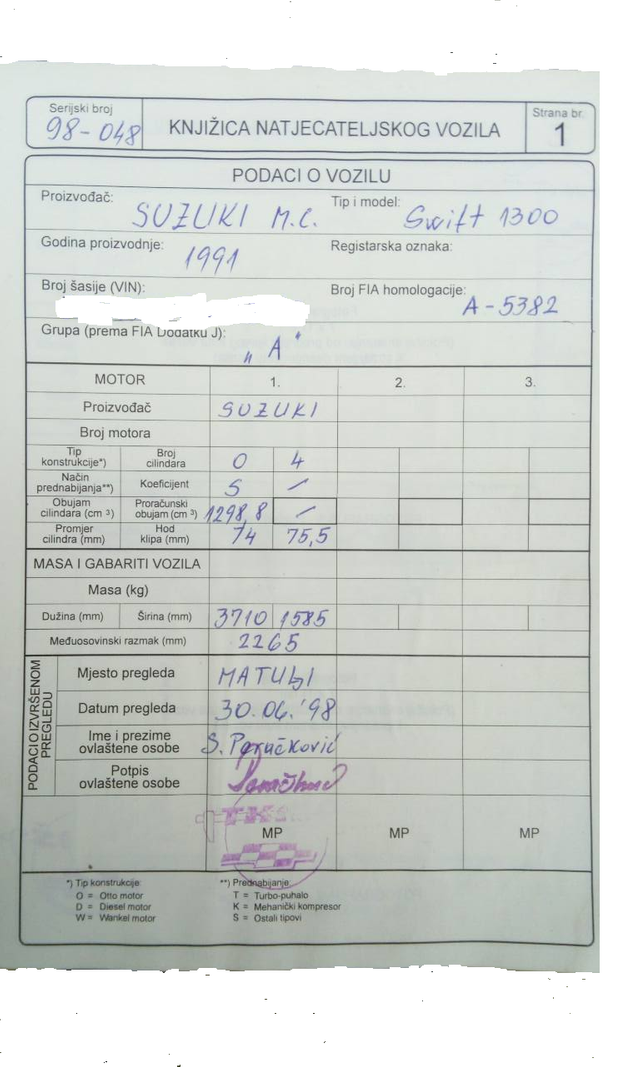 Serijski broj
98-048
KNJIŽICA NATJECATELJSKOG VOZILA
Strana br.
1
PODACI O VOZILU
Proizvođač: SUZUKI M.C.
Tip i model: Swift 1300
Godina proizvodnje: 1991
Registarska oznaka:
Broj šasije (VIN):
Broj FIA homologacije: A-5382
Grupa (prema FIA Dodatku J): "A"
MOTOR 1. 2. 3.
Proizvođač SUZUKI
Broj motora
Tip konstrukcije*) Broj cilindara O 4
Način prednabijanja**) Koeficijent S /
Obujam cilindara (cm 3) Proračunski obujam (cm 3) 1298,8 /
Promjer cilindra (mm) Hod klipa (mm) 74 75,5
MASA I GABARITI VOZILA
Masa (kg)
Dužina (mm) Širina (mm) 3710 1585
Međuosovinski razmak (mm) 2265
PODACI O IZVRŠENOM PREGLEDU
Mjesto pregleda MATULJI
Datum pregleda 30.06.'98
Ime i prezime ovlaštene osobe S.
Potpis ovlaštene osobe
MP MP MP
*) Tip konstrukcije:
O = Otto motor
D = Diesel motor
W = Wankel motor
**) Prednabijanje:
T = Turbo-puhalo
K = Mehanički kompresor
S = Ostali tipovi